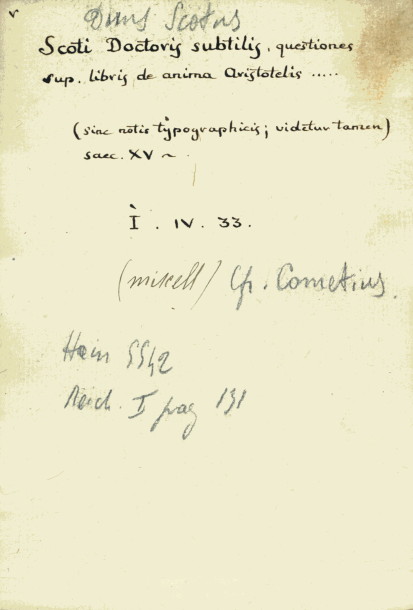 v
Duns Scotus
Scoti Doctoris subtilis. questiones
sup. libris de anima Aristotelis .....
(sine notis typographicis; videtur tamen)
saec. XV ~
I . IV . 33.
(miscell) Cfr. Cometius.
Hain 5542
Reich. I pag 131